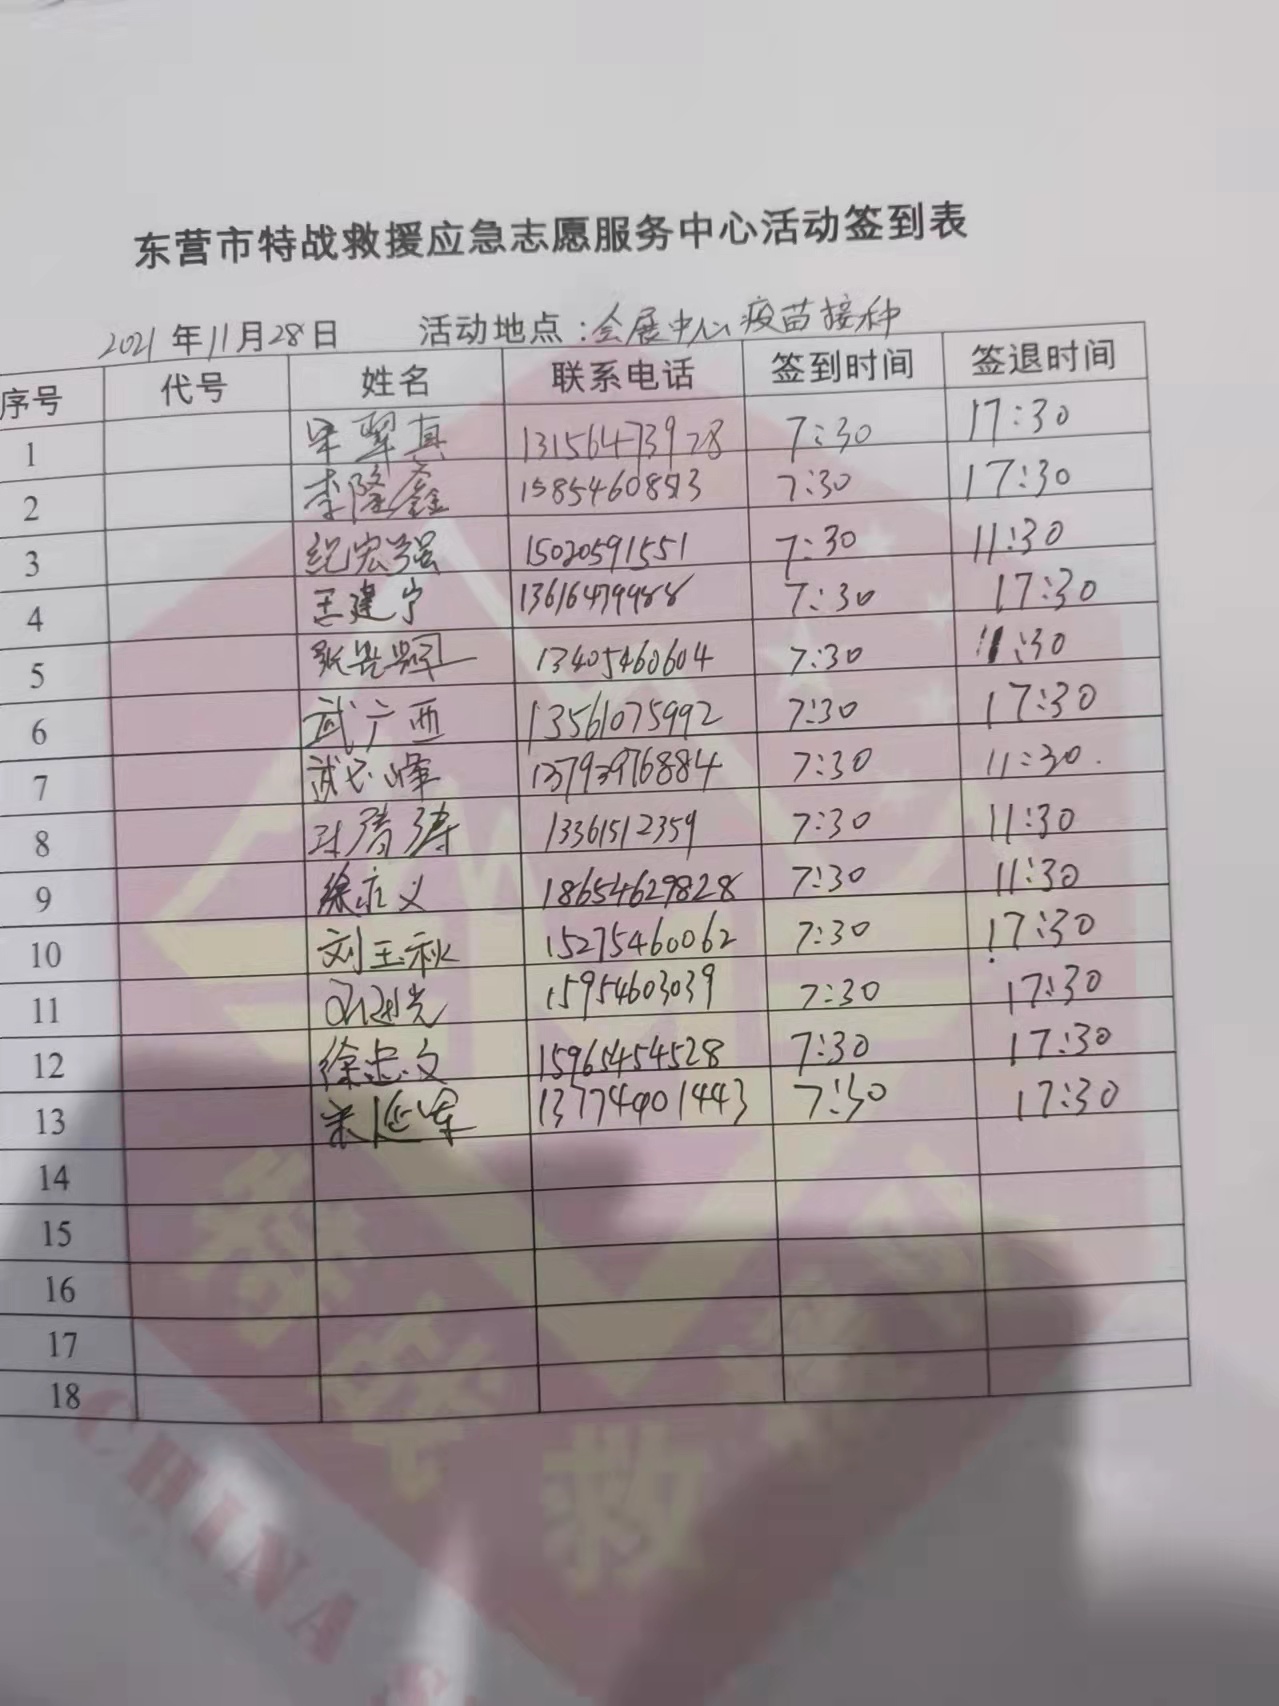 东营市特战救援应急志愿服务中心活动签到表
2021年11月28日 活动地点：会展中心疫苗接种
序号 代号 姓名 联系电话 签到时间 签退时间
1 13156473928 7:30 17:30
2 李隆鑫 7:30 17:30
3 纪宏强 15020591551 7:30 11:30
4 王建宁 13616479988 7:30 17:30
5 13405460604 7:30 11:30
6 武广西 13561075992 7:30 17:30
7 13793976884 7:30 11:30.
8 13361512359 7:30 11:30
9 徐永义 18654629828 7:30 11:30
10 刘玉秋 15275460062 7:30 17:30
11 15954603039 7:30 17:30
12 徐忠文 15965454528 7:30 17:30
13 宋延军 13774901443 7:30 17:30
14
15
16
17
18
救
CHINA S